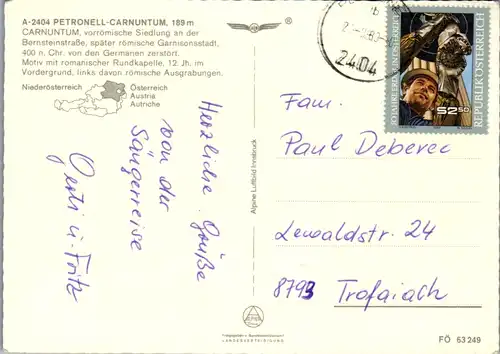 A-2404 PETRONELL-CARNUNTUM, 189 m
CARNUNTUM, vorrömische Siedlung an der
Bernsteinstraße, später römische Garnisonsstadt,
400 n. Chr. von den Germanen zerstört.
Motiv mit romanischer Rundkapelle, 12. Jh. im
Vordergrund, links davon römische Ausgrabungen.
Niederösterreich
Österreich
Austria
Autriche
Herzliche Grüße
von der
Sängerreise
Gerti u. Fritz
Alpine Luftbild Innsbruck
2404
S2.50
REPUBLIK ÖSTERREICH
Fam.
Paul Deberec
Lewaldstr. 24
8793 Trofaiach
FÖ 63 249